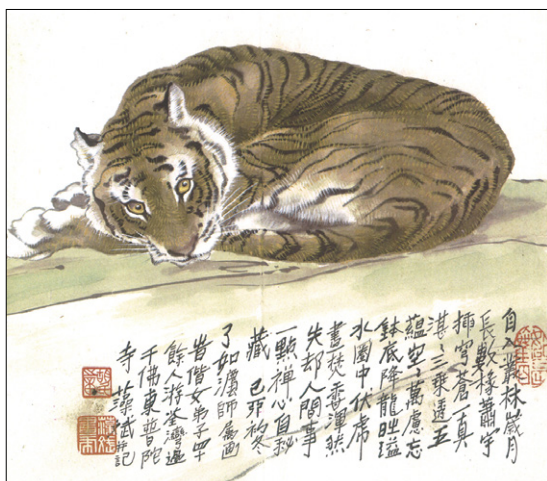 自入叢林歲月
長數椽蕭宇
插穹蒼一真
湛〻三乘透五
蘊空〻萬慮忘
鉢底降龍時溢
水圈中伏虎
晝焚香渾然
失却人間事
一點禪心自秘
藏 己卯初冬
了如法師屬画
偕女弟子四十
餘人游荃灣
千佛東普陀
寺 藻斌并記